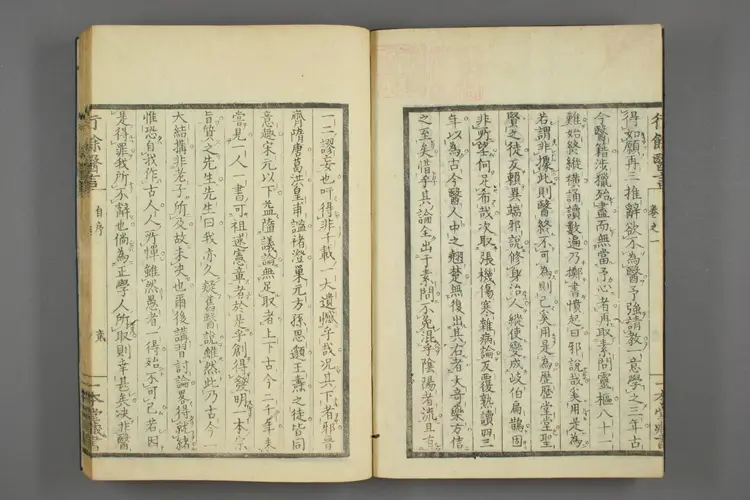 得如願再三推辭欲不為醫予強請教一意學之三年古
今醫籍涉獵殆盡而無當予心者再取素問靈樞八十一
難始終縱橫誦讀數遍乃擲書憤起曰邪說哉奚用是為
若謂非據此則醫終不可為則已奚用是為歷歷堂堂聖
賢之徒友賴異端邪說修身治人縱使變成岐伯扁鵲固
非所望何足希哉次取張機傷寒雜病論反覆熟讀四三
年以為古今醫人中之翹楚無復出其右者大奇藥方信
之至矣惜乎其論全出于素問不免混乎陰陽者流且有
行餘醫言
卷之一
一本堂藏書
一二謬妄也吁得非千載一大遺憾乎哉況其下者邪晉
齊隋唐葛洪皇甫謐褚澄巢元方孫思邈王燾之徒皆同
意趣宋元以下益隘議論無足取者上下古今二千年未
嘗見一人一書可祖述憲章者於是乎創得發明一本宗
旨質之先生先生曰我亦久疑舊醫說雖然此乃古今一
大結構非老子所及故未決也爾後講習討論略得就緒
惟恐自我作古人人所憚雖然愚者一得始不可已若因
是得罪我所不辭也倘為正學人所取則幸甚矣決非醫
行餘醫言
自序
一本堂藏書